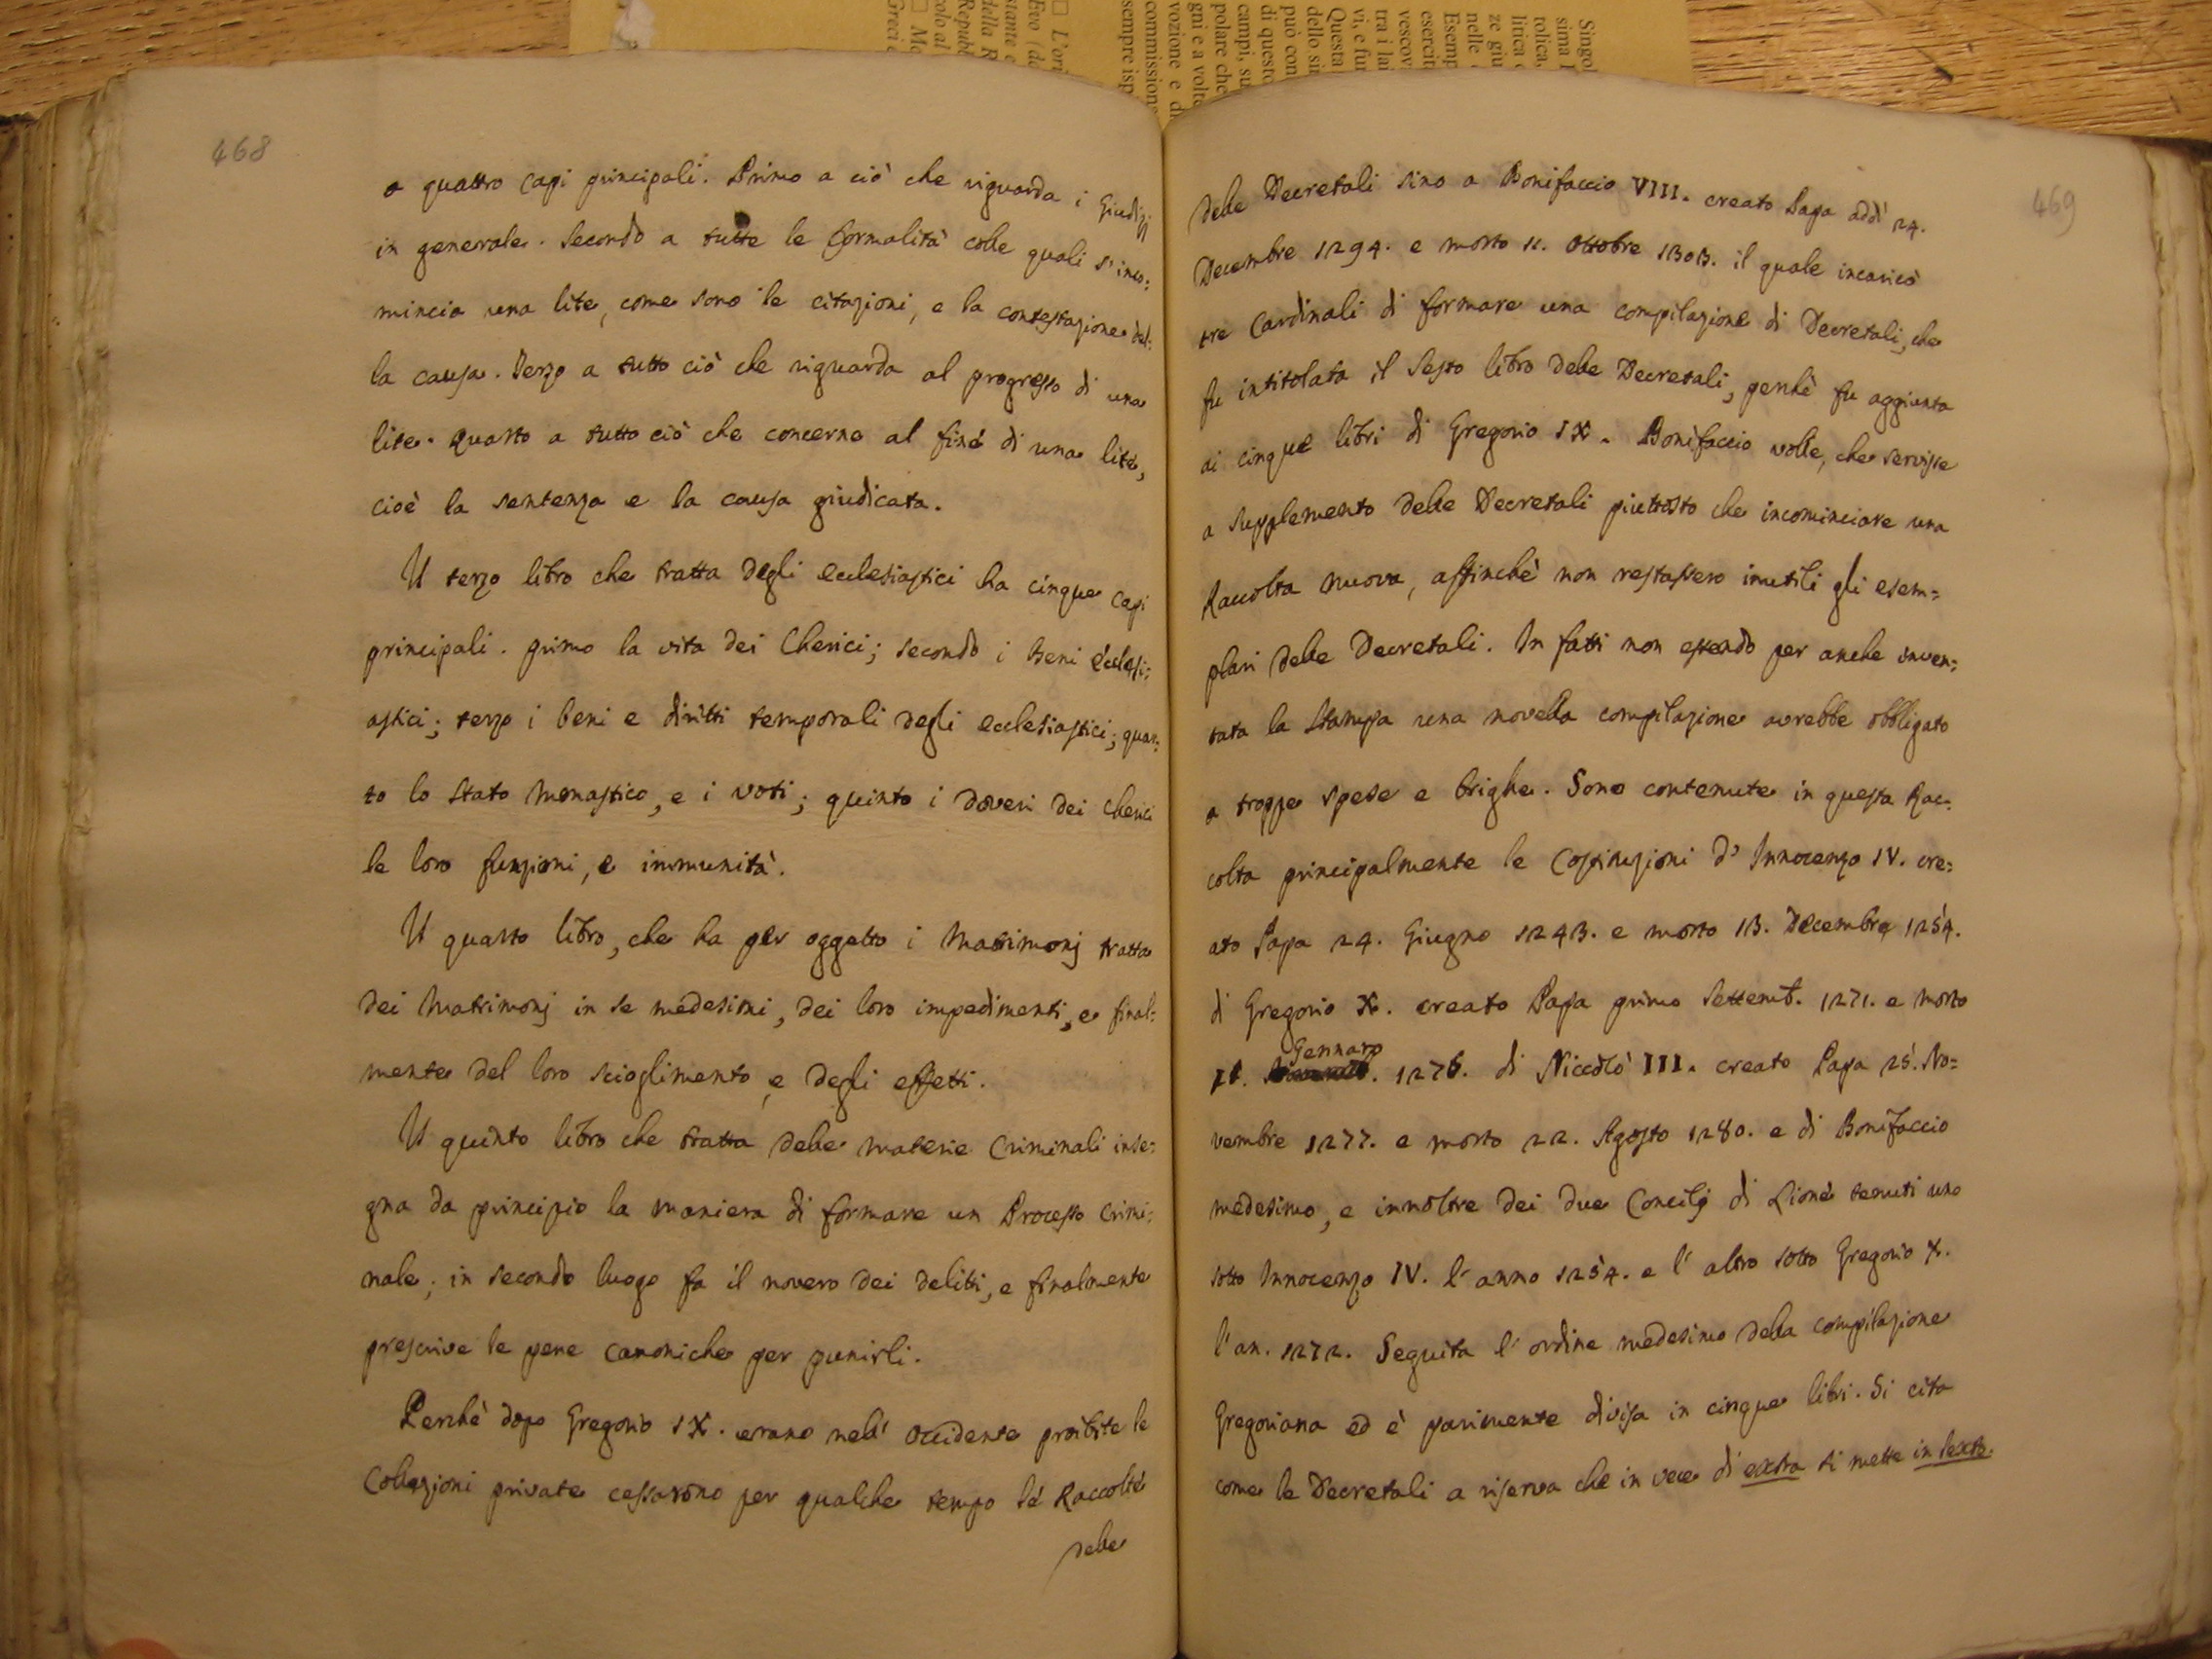 468
a quattro capi principali. Primo a ciò che riguarda i Giudizj
in generale. Secondo a tutte le formalità colle quali s'inco=
mincia una lite, come sono le citazioni, e la contestazione del=
la causa. Terzo a tutto ciò che riguarda al progresso di una
lite. Quarto a tutto ciò che concerne al fine di una lite,
cioè la sentenza e la causa giudicata.
Il terzo libro che tratta degli ecclesiastici ha cinque capi
principali. primo la vita dei Cherici; secondo i beni eccelesi=
astici; terzo i beni e diritti temporali degli ecclesiastici; quar=
to lo stato Monastico, e i voti; quinto i doveri dei Cherici
le loro funzioni, e immunità.
Il quarto libro, che ha per oggetto i Matrimonj tratta
dei Matrimonj in se medesimi, dei loro impedimenti, e final=
mente del loro scioglimento, e degli effetti.
Il quinto libro che tratta delle materie Criminali inse=
gna da principio la maniera di formare un Processo crimi=
nale; in secondo luogo fa il novero dei delitti, e finalmente
prescrive le pene canoniche per punirli.
Perchè dopo Gregorio IX. erano nell' occidente proibite le
Collezioni private cessarono per qualche tempo le Raccolte
delle
469
delle Decretali sino a Bonifaccio VIII. creato Papa addì 24.
Decembre 1294. e morto 11. Ottobre 1303. il quale incaricò
tre Cardinali di formare una compilazione di Decretali, che
fu intitolata il Sesto libro delle Decretali, perchè fu aggiunta
ai cinque libri di Gregorio IX. Bonifaccio volle, che servisse
a supplemento delle Decretali piuttosto che incominciare una
Raccolta nuova, affinchè non restassero inutili gli esem=
plari delle Decretali. In fatti non essendo per anche inven=
tata la Stampa una novella compilazione avrebbe obbligato
a troppe spese e brighe. Sono contenute in questa Rac=
colta principalmente le Costituzioni d' Innocenzo IV. cre=
ato Papa 24. Giugno 1243. e morto 13. Decembre 1254.
di Gregorio X. creato Papa primo Settemb. 1271. e morto
Gennaro
1276. di Niccolò III. creato Papa 25. No=
vembre 1277. e morto 22. Agosto 1280. e di Bonifaccio
medesimo, e innoltre dei due Concilj di Lione tenuti uno
sotto Innocenzo IV. l'anno 1254. e l' altro sotto Gregorio X.
l'an. 1272. Seguita l' ordine medesimo della compilazione
Gregoriana ed è parimente divisa in cinque libri. Si cita
come le Decretali a riserva che in vece di extra si mette in sexto.